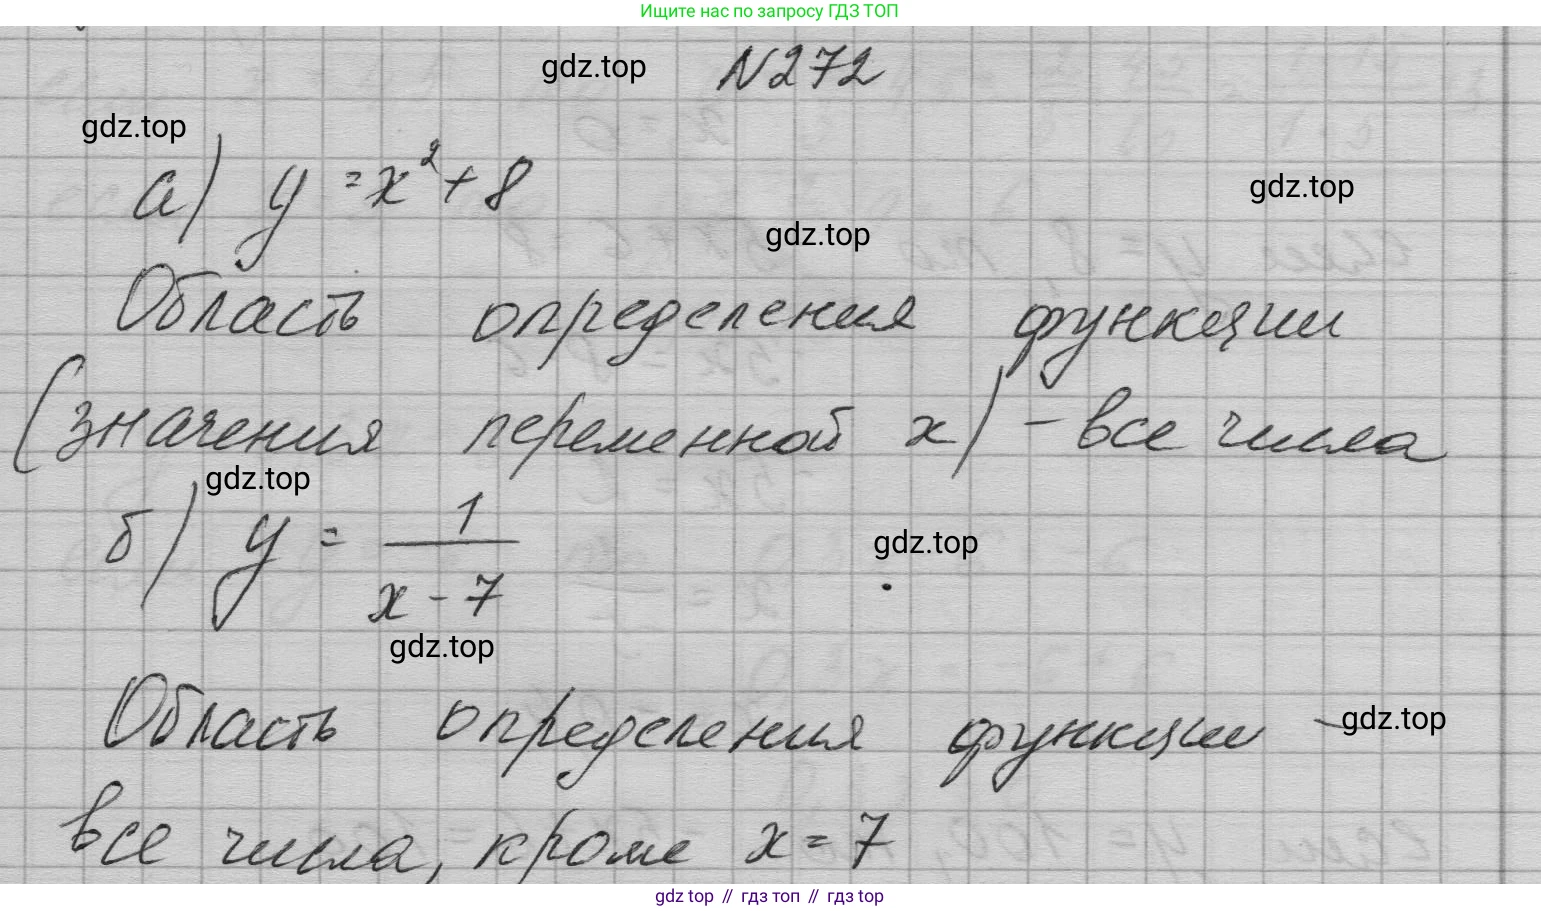 Ищите нас по запросу ГДЗ ТОП
gdz.top
N272
gdz.top
а) y = x² + 8
gdz.top
gdz.top
Область определения функции
(значения переменной x) - все числа
gdz.top
б) y = 1/(x - 7)
gdz.top
gdz.top
Область определения функции -
gdz.top
все числа, кроме x = 7
gdz top // гдз топ // гдз top